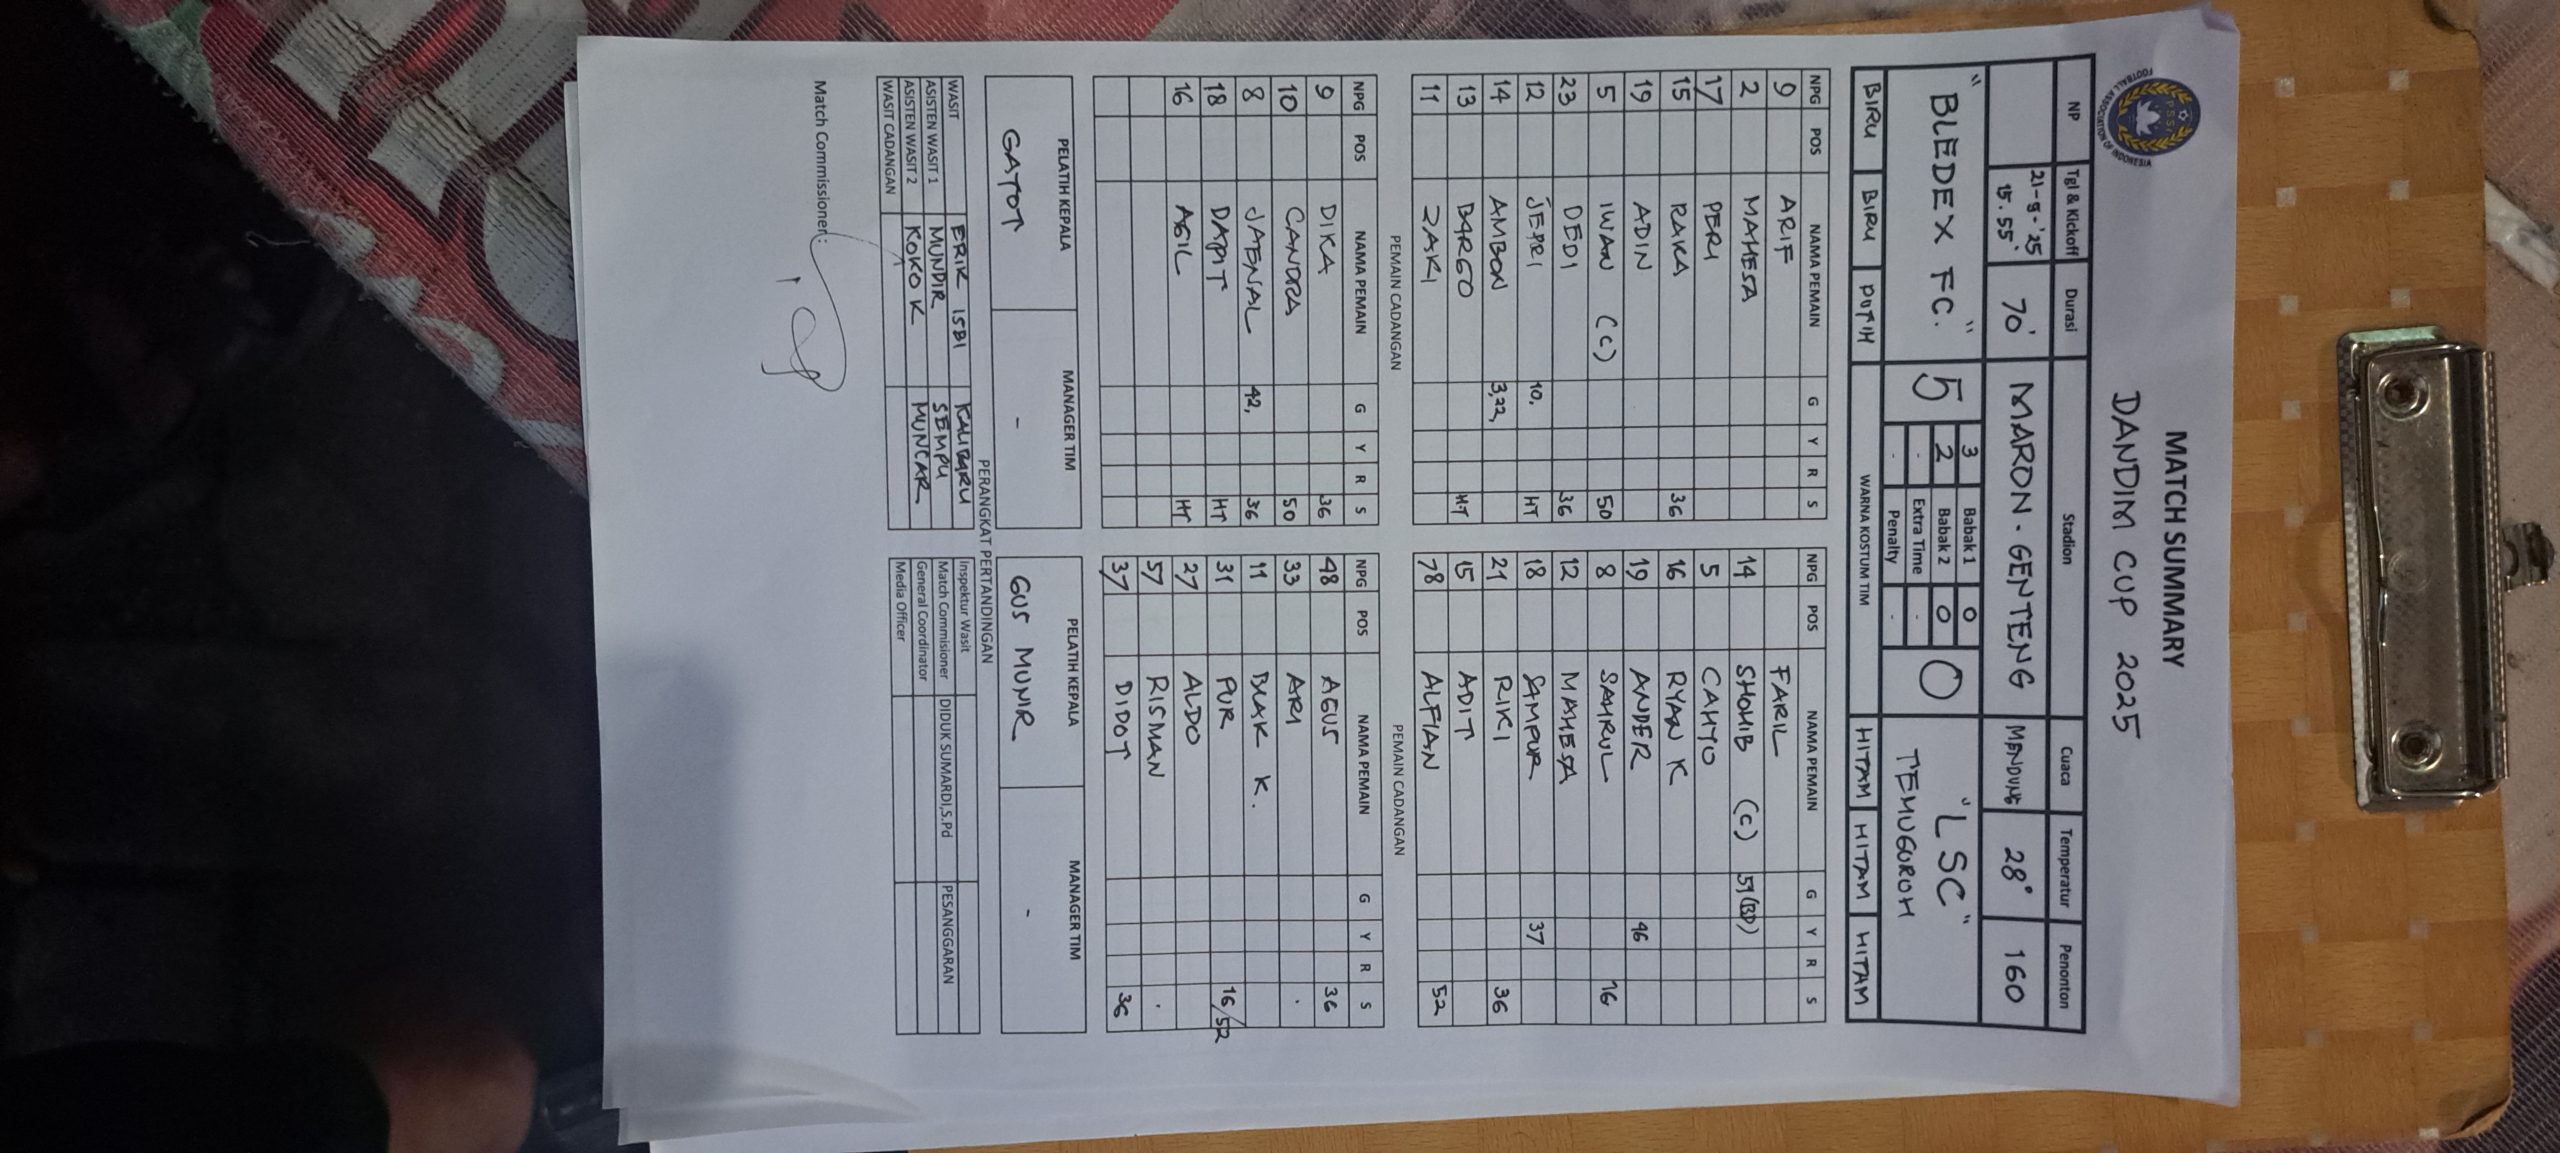 PSSI
FOOTBALL ASSOCIATION OF INDONESIA
MATCH SUMMARY
DANDIM CUP 2025
NP Tgl & Kickoff Durasi Stadion Cuaca Temperatur Penonton
21-9-'25 15.55' 70' MARON - GENTENG MENDUNG 28° 160
"BLEDEX FC." 5 3 Babak 1 0 0 "LSC"
2 Babak 2 0 TEMUGUROH
- Extra Time -
- Penalty -
BIRU BIRU PUTIH WARNA KOSTUM TIM HITAM HITAM HITAM
NPG POS NAMA PEMAIN G Y R S NPG POS NAMA PEMAIN G Y R S
9 ARIF FARIL
2 MAHESA 14 SHOHIB (C) 51(BD)
17 PERI 5 CAHYO
15 RAKA 36 16 RYAN K
19 ADIN 19 ANDER 46
5 IWAN (C) 50 8 SAHRUL 16
23 DEDI 36 12 MAHESA
12 JEPRI 10, HT 18 SAMPUR 37
14 AMBON 3,22, 21 RIKI 36
13 BARGO HT 15 ADIT
11 ZAKI 78 ALFIAN 52
PEMAIN CADANGAN PEMAIN CADANGAN
NPG POS NAMA PEMAIN G Y R S NPG POS NAMA PEMAIN G Y R S
9 DIKA 36 48 AGUS 36
10 CANDRA 50 33 ARI .
8 JAENSAL 42, 36 11 BLAK K.
18 DAPIT HT 31 PUR 16/52
16 AGIL HT 27 ALDO
57 RISMAN .
37 DIDOT 36
PELATIH KEPALA MANAGER TIM PELATIH KEPALA MANAGER TIM
GATOT - GUS MUNIR -
PERANGKAT PERTANDINGAN
WASIT ERIK ISBI KALIBARU Inspektur Wasit
ASISTEN WASIT 1 MUNDIR SEMPU Match Commisioner DIDUK SUMARDI,S.Pd PESANGGARAN
ASISTEN WASIT 2 KOKO K MUNCAR General Coordinator
WASIT CADANGAN Media Officer
Match Commissioner: